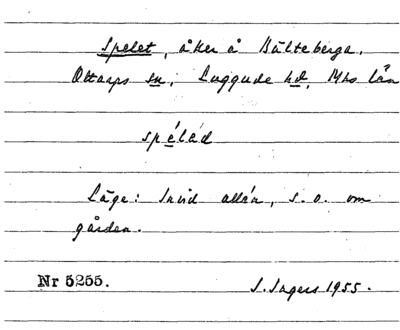 Spelet, åker å Bälteberga.
Ottarps sn, Luggude hd, Mhs län
spélàd
Läge: Invid allén, s. o. om
gården.
Nr 5255. I. Ingers 1955.